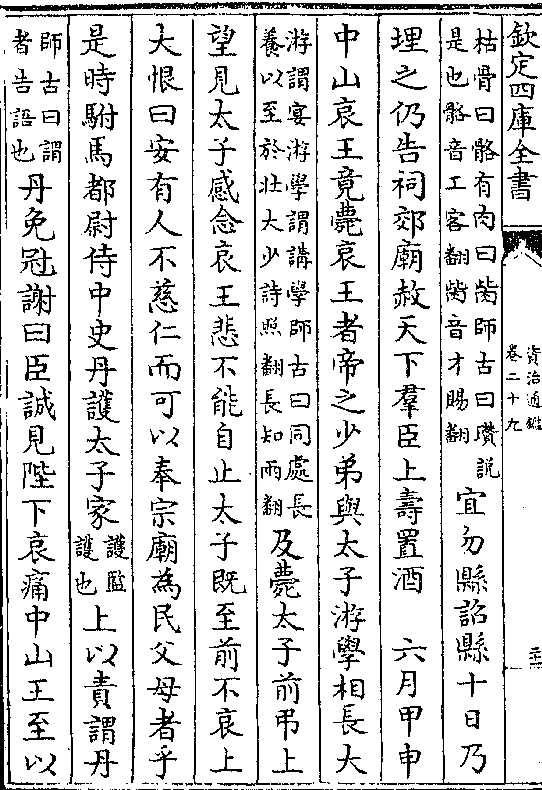 欽定四庫全書
資治通鑑
卷二十九
二十一
枯骨曰骼有肉曰胔師古曰瓚説
是也骼音工客翻胔音才賜翻
宜勿縣詔縣十日乃
埋之仍告祠郊廟赦天下羣臣上壽置酒 六月甲申
中山哀王竟薨哀王者帝之少弟與太子游學相長大
游謂宴游學謂講學師古曰同處長
養以至於壯大少詩照翻長知兩翻
及薨太子前弔上
望見太子感念哀王悲不能自止太子既至前不哀上
大恨曰安有人不慈仁而可以奉宗廟為民父母者乎
是時駙馬都尉侍中史丹護太子家
護監
護也
上以責謂丹
師古曰謂
者告語也
丹免冠謝曰臣誠見陛下哀痛中山王至以